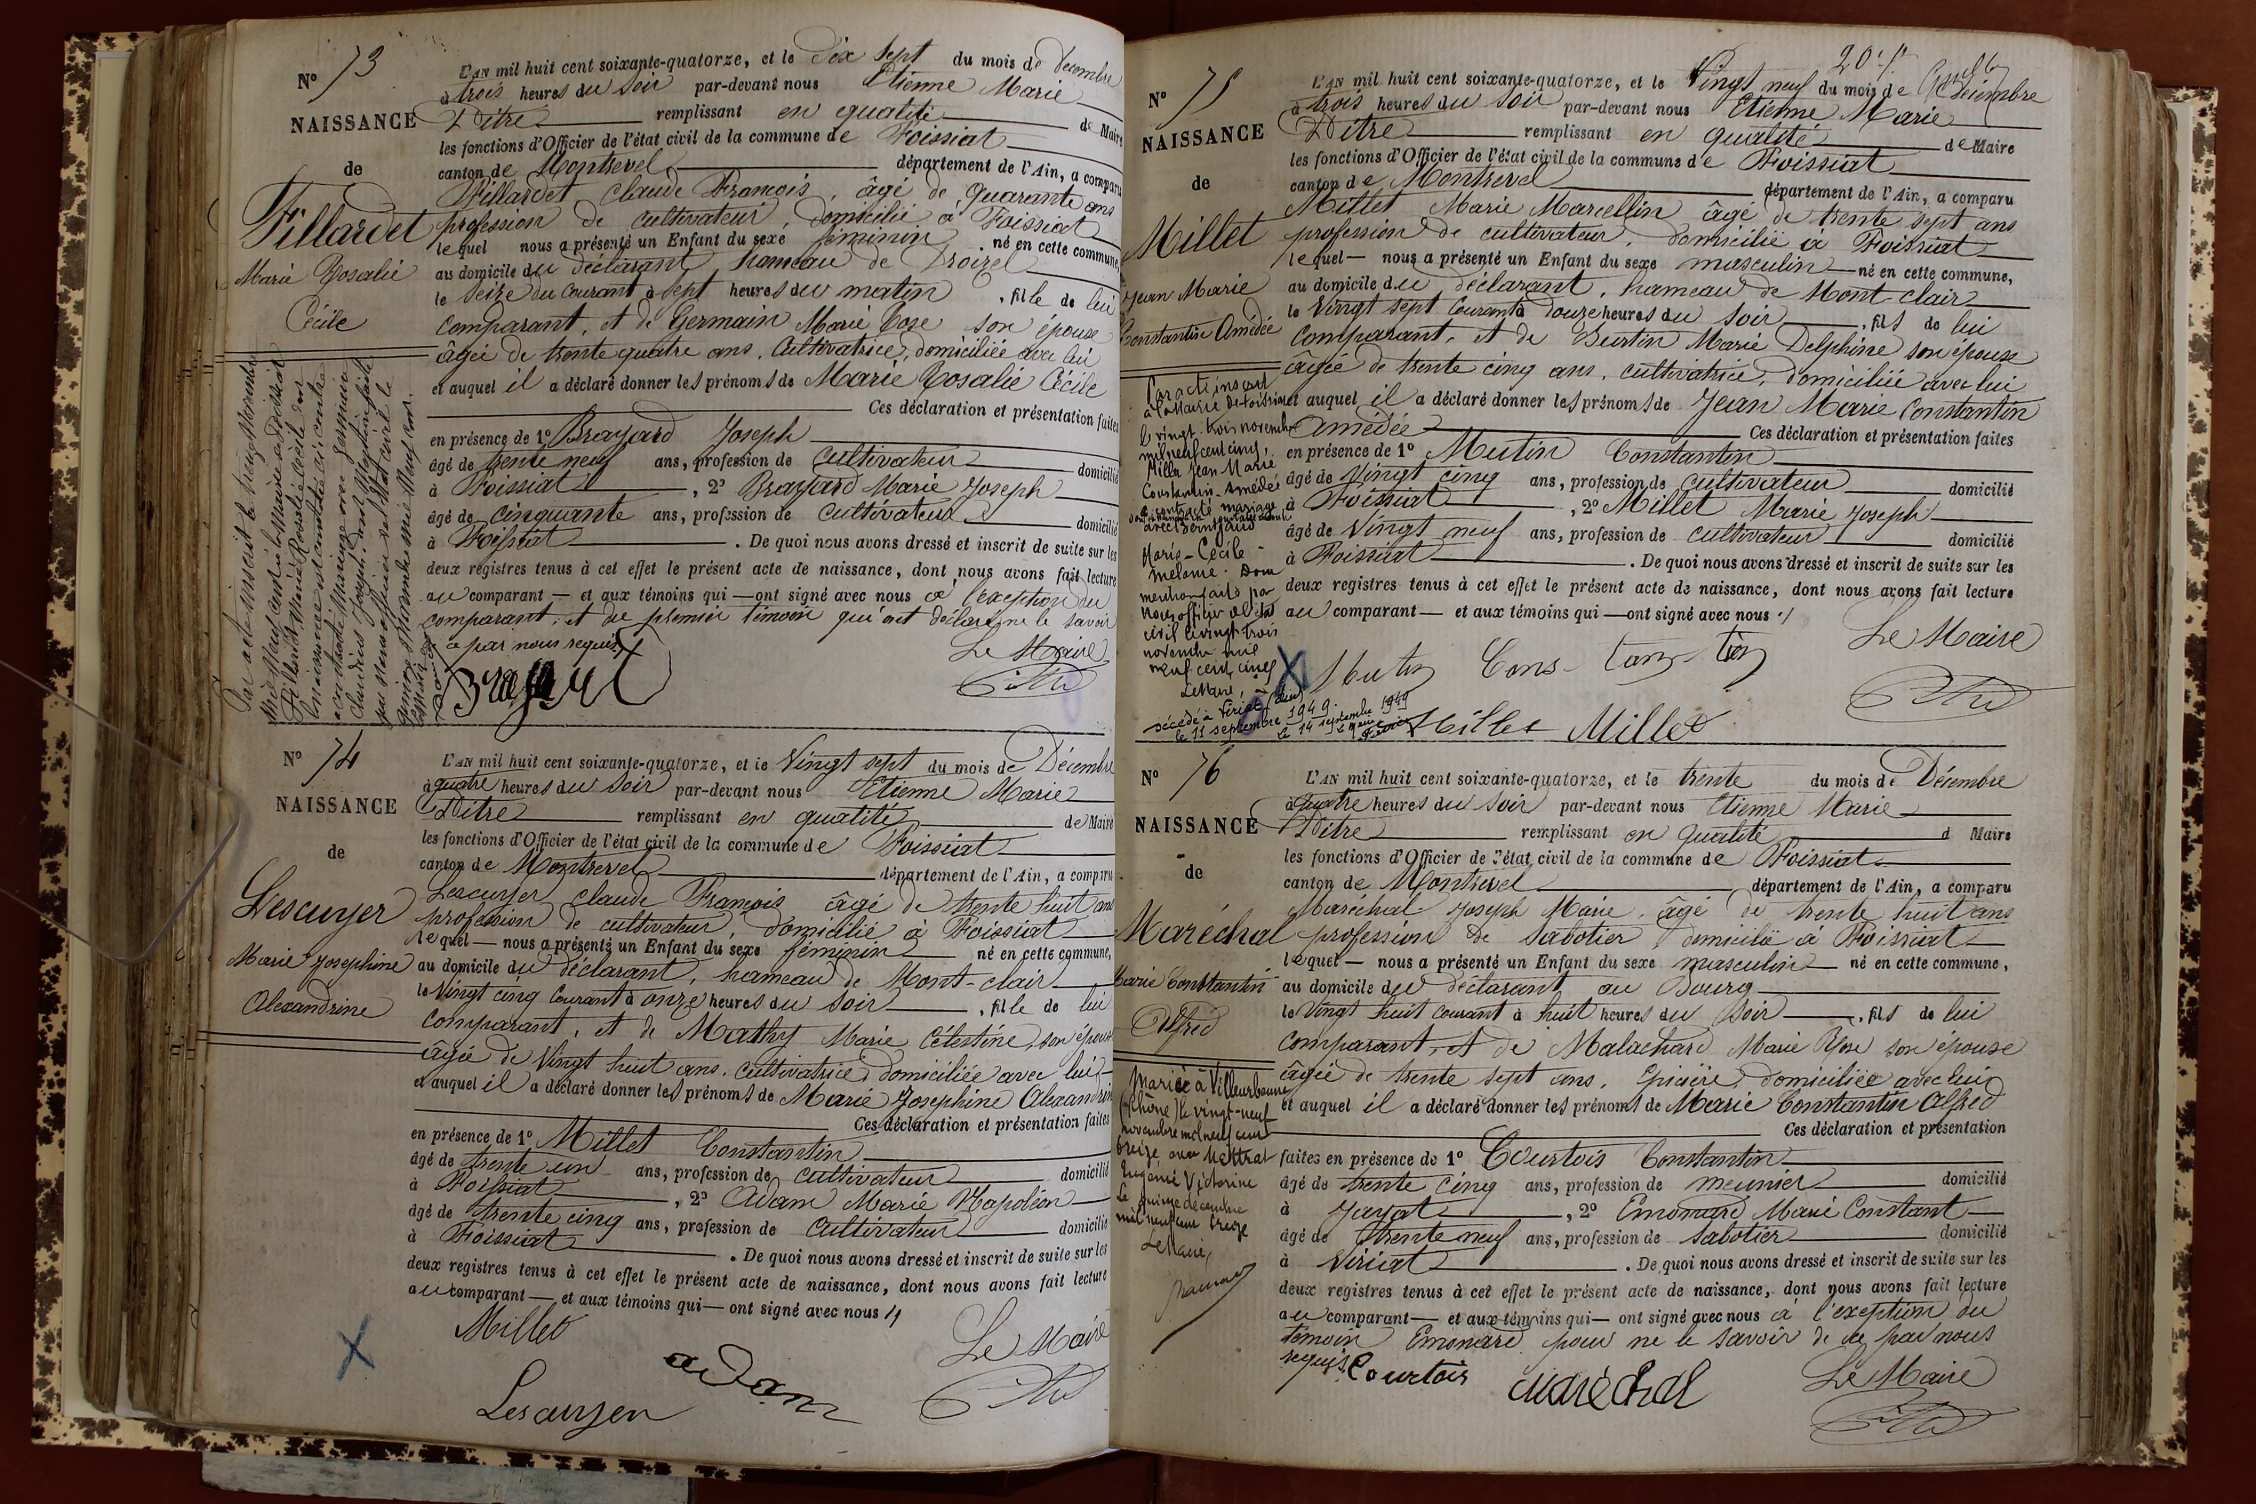 N° 73
NAISSANCE
de
Fillardet
Marie Rosalie
Cécile
L'AN mil huit cent soixante-quatorze, et le Dix sept du mois de Décembre
à trois heures du soir par-devant nous Etienne Marie
Pitre remplissant en qualité de Maire
les fonctions d'Officier de l'état civil de la commune de Foissiat
canton de Montrevel département de l'Ain, a comparu
Fillardet Claude François, âgé de quarante ans
profession de cultivateur, domicilié à Foissiat
lequel nous a présenté un Enfant du sexe féminin né en cette commune,
au domicile du déclarant, hameau de
le seize du courant à sept heures du matin, fille de lui
comparant, et de Germain Marie Rose son épouse
âgée de trente quatre ans, cultivatrice, domiciliée avec lui
et auquel il a déclaré donner les prénoms de Marie Rosalie Cécile
Ces déclaration et présentation faites
en présence de 1° Brayard Joseph
âgé de trente neuf ans, profession de cultivateur domicilié
à Foissiat, 2° Brayard Marie Joseph
âgé de cinquante ans, profession de cultivateur domicilié
à Foissiat. De quoi nous avons dressé et inscrit de suite sur les
deux registres tenus à cet effet le présent acte de naissance, dont nous avons fait lecture
au comparant et aux témoins qui ont signé avec nous à l'exception du
comparant, et du premier témoin qui ont déclaré ne le savoir
par nous requis
Le Maire
N° 74
NAISSANCE
de
Lescuyer
Marie Josephine
Alexandrine
L'AN mil huit cent soixante-quatorze, et le Vingt sept du mois de Décembre
à quatre heures du soir par-devant nous Etienne Marie
Pitre remplissant en qualité de Maire
les fonctions d'Officier de l'état civil de la commune de Foissiat
canton de Montrevel département de l'Ain, a comparu
Lescuyer Claude François âgé de trente huit ans
profession de cultivateur, domicilié à Foissiat
lequel nous a présenté un Enfant du sexe féminin né en cette commune,
au domicile du déclarant, hameau de Mont-clair
le Vingt cinq courant à onze heures du soir, fille de lui
comparant, et de Mathy Marie Célestine, son épouse
âgée de Vingt huit ans, cultivatrice, domiciliée avec lui
et auquel il a déclaré donner les prénoms de Marie Josephine Alexandrine
Ces déclaration et présentation faites
en présence de 1° Millet Constantin
âgé de trente un ans, profession de cultivateur domicilié
à Foissiat, 2° Adam Marie Napoléon
âgé de trente cinq ans, profession de cultivateur domicilié
à Foissiat. De quoi nous avons dressé et inscrit de suite sur les
deux registres tenus à cet effet le présent acte de naissance, dont nous avons fait lecture
au comparant et aux témoins qui ont signé avec nous
Millet
Le Maire
adam
Lescuyer
N° 75
NAISSANCE
de
Millet
Jean Marie
Constantin Amédée
L'AN mil huit cent soixante-quatorze, et le Vingt neuf du mois de Décembre
à trois heures du soir par-devant nous Etienne Marie
Pitre remplissant en qualité de Maire
les fonctions d'Officier de l'état civil de la commune de Foissiat
canton de Montrevel département de l'Ain, a comparu
Millet Marie Marcellin âgé de trente sept ans
profession de cultivateur, domicilié à Foissiat
lequel nous a présenté un Enfant du sexe masculin né en cette commune,
au domicile du déclarant, hameau de Mont-clair
le Vingt sept courant à douze heures du soir, fils de lui
comparant, et de Burtin Marie Delphine son épouse
âgée de trente cinq ans, cultivatrice, domiciliée avec lui
et auquel il a déclaré donner les prénoms de Jean Marie Constantin
Amédée Ces déclaration et présentation faites
en présence de 1° Mutin Constantin
âgé de Vingt cinq ans, profession de cultivateur domicilié
à Foissiat, 2° Millet Marie Joseph
âgé de Vingt neuf ans, profession de cultivateur domicilié
à Foissiat. De quoi nous avons dressé et inscrit de suite sur les
deux registres tenus à cet effet le présent acte de naissance, dont nous avons fait lecture
au comparant et aux témoins qui ont signé avec nous
Le Maire
Mutin Constantin
Millet Millet
Par acte inscrit
à la Mairie de Foissiat
le vingt trois novembre
mil neuf cent cinq,
Millet Jean Marie
Constantin Amédée
a contracté mariage
avec
Marie-Cécile
Mélanie. Dont
mention faite par
nous officier de l'état
civil le vingt trois
novembre mil
neuf cent cinq
Le Maire,
décédé à Viriat (Ain)
le 11 septembre 1949.
le 14 septembre 1949
N° 76
NAISSANCE
de
Maréchal
Marie Constantin
Alfred
L'AN mil huit cent soixante-quatorze, et le trente du mois de Décembre
à quatre heures du soir par-devant nous Etienne Marie
Pitre remplissant en qualité d Maire
les fonctions d'Officier de l'état civil de la commune de Foissiat
canton de Montrevel département de l'Ain, a comparu
Maréchal Joseph Marie, âgé de trente huit ans
profession de sabotier domicilié à Foissiat
lequel nous a présenté un Enfant du sexe masculin né en cette commune,
au domicile du déclarant au Bourg
le Vingt huit courant à huit heures du soir, fils de lui
comparant, et de Malachard Marie Rose son épouse
âgée de trente sept ans, Epicière, domiciliée avec lui
et auquel il a déclaré donner les prénoms de Marie Constantin Alfred
Ces déclaration et présentation
faites en présence de 1° Courtois Constantin
âgé de trente cinq ans, profession de meunier domicilié
à Jayat, 2° Emonard Marie Constant
âgé de trente neuf ans, profession de sabotier domicilié
à Viriat. De quoi nous avons dressé et inscrit de suite sur les
deux registres tenus à cet effet le présent acte de naissance, dont nous avons fait lecture
au comparant et aux témoins qui ont signé avec nous à l'exception du
témoin Emonard pour ne le savoir de ce par nous
requis.
Courtois
Maréchal
Le Maire
Marié à Villeurbanne
(Rhône) le vingt-neuf
novembre mil neuf cent
treize avec
Eugénie Victorine
Le quinze décembre
mil neuf cent treize
Le Maire,